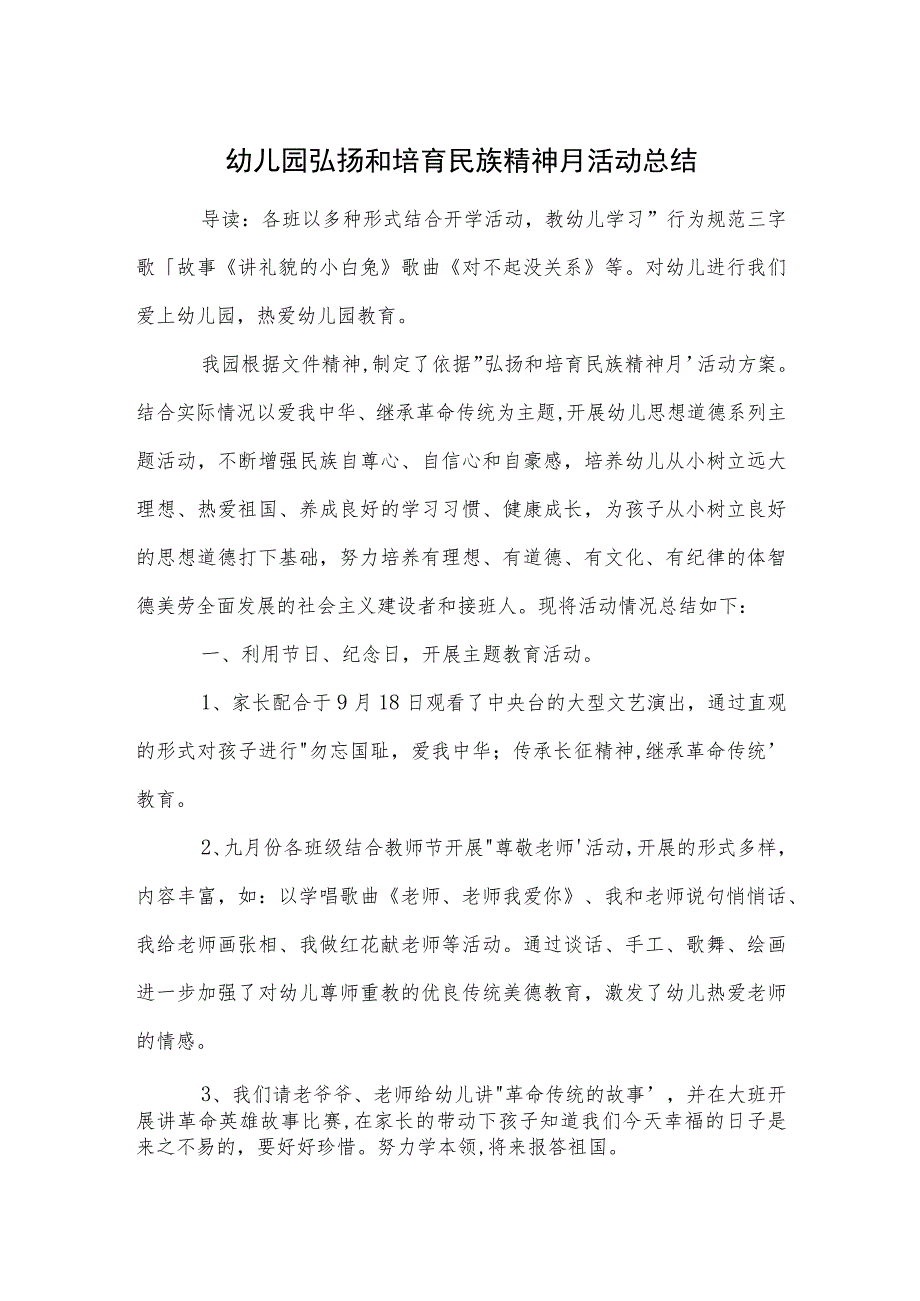 幼儿园弘扬和培育民族精神月活动总结
导读：各班以多种形式结合开学活动，教幼儿学习”行为规范三字
歌「故事《讲礼貌的小白兔》歌曲《对不起没关系》等。对幼儿进行我们
爱上幼儿园，热爱幼儿园教育。
我园根据文件精神,制定了依据”弘扬和培育民族精神月’活动方案。
结合实际情况以爱我中华、继承革命传统为主题,开展幼儿思想道德系列主
题活动，不断增强民族自尊心、自信心和自豪感，培养幼儿从小树立远大
理想、热爱祖国、养成良好的学习习惯、健康成长，为孩子从小树立良好
的思想道德打下基础，努力培养有理想、有道德、有文化、有纪律的体智
德美劳全面发展的社会主义建设者和接班人。现将活动情况总结如下：
一、利用节日、纪念日，开展主题教育活动。
1、家长配合于9月18日观看了中央台的大型文艺演出，通过直观
的形式对孩子进行"勿忘国耻，爱我中华；传承长征精神,继承革命传统’
教育。
2、九月份各班级结合教师节开展"尊敬老师'活动,开展的形式多样，
内容丰富，如：以学唱歌曲《老师、老师我爱你》、我和老师说句悄悄话、
我给老师画张相、我做红花献老师等活动。通过谈话、手工、歌舞、绘画
进一步加强了对幼儿尊师重教的优良传统美德教育，激发了幼儿热爱老师
的情感。
3、我们请老爷爷、老师给幼儿讲"革命传统的故事’，并在大班开
展讲革命英雄故事比赛,在家长的带动下孩子知道我们今天幸福的日子是
来之不易的，要好好珍惜。努力学本领,将来报答祖国。